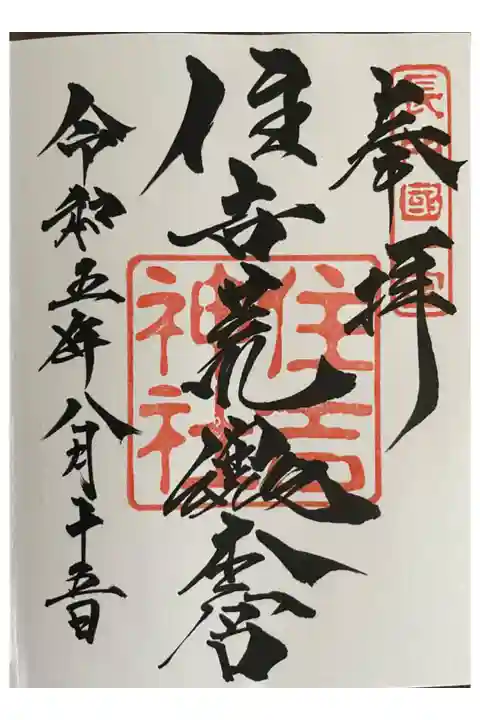 長門國一宮
奉拝
住吉荒魂本宮
住吉
神社
令和五年八月十五日